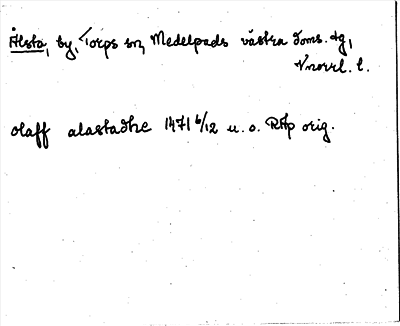 Ålsta, by, Torps sn, Medelpads västra doms. dg,
Vnorrl. l.
olaff alastadhe 1471 6/12 u. o. RAp orig.